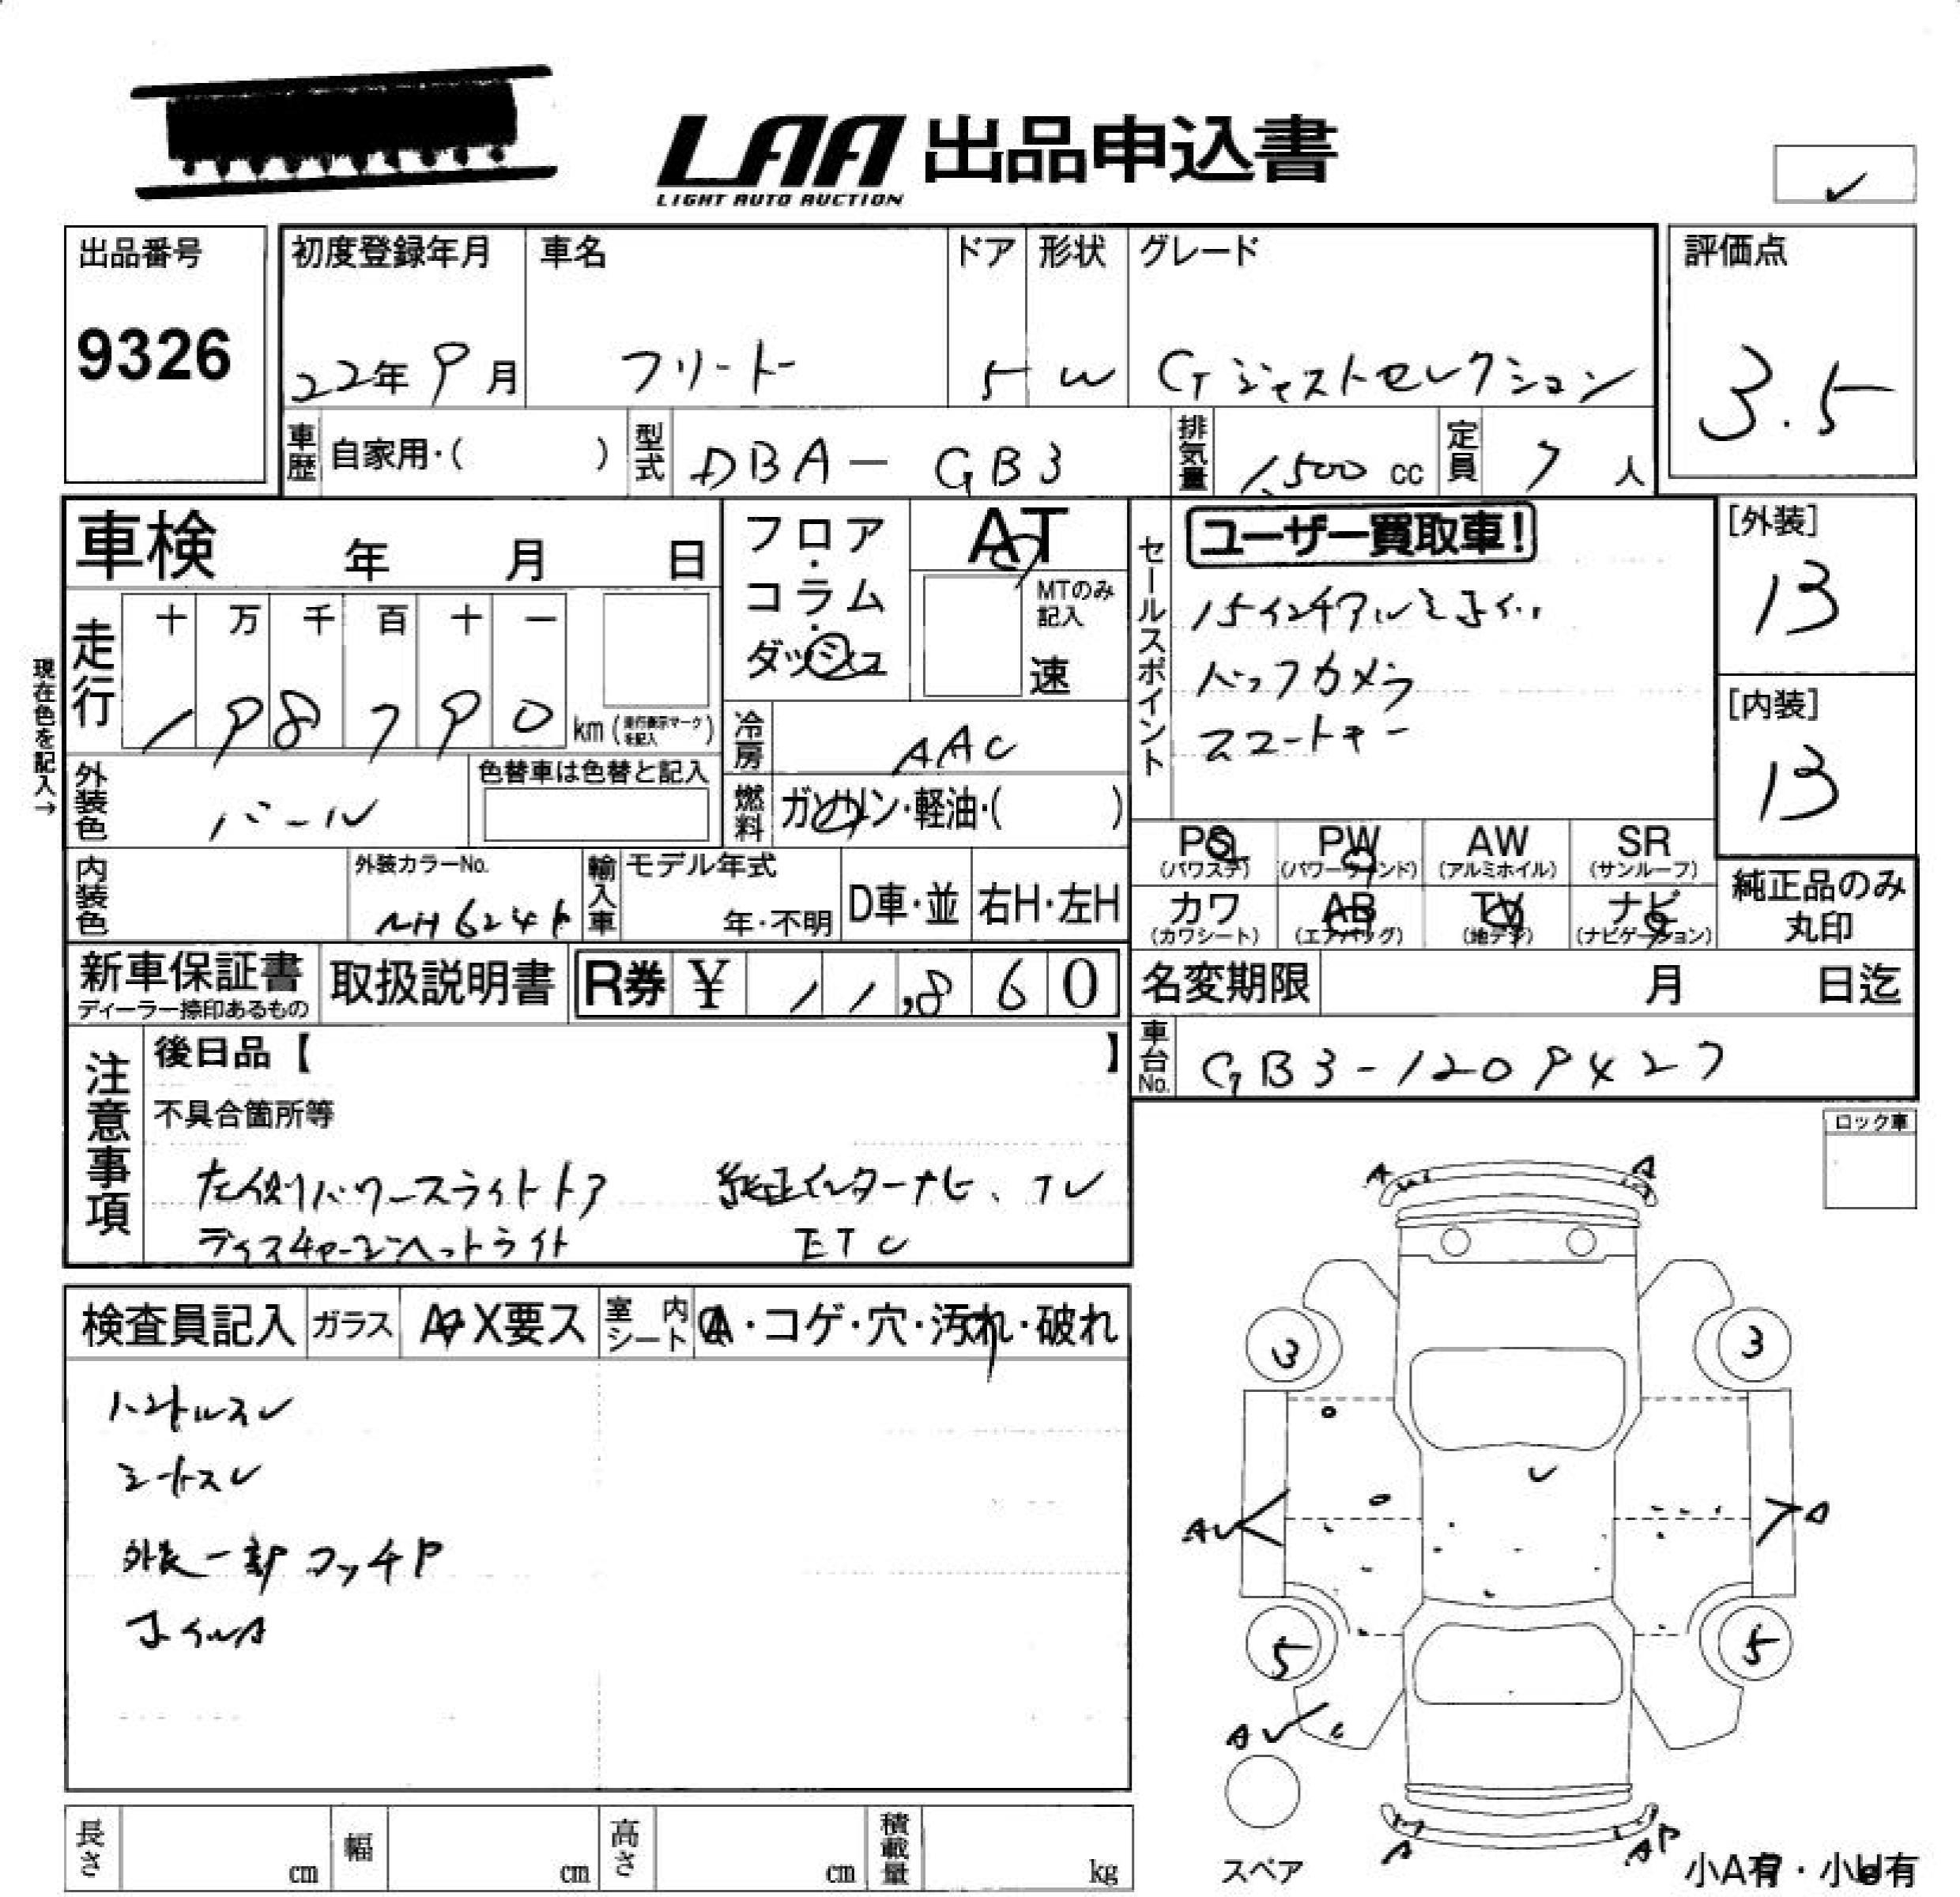 LAA 出品申込書
LIGHT AUTO AUCTION
出品番号
9326
初度登録年月 車名 ドア 形状 グレード
22年 9月 フリード 5 W G ジャストセレクション
評価点
3.5
車歴 自家用・( ) 型式 DBA-GB3 排気量 1,500 cc 定員 7 人
車検 年 月 日
フロア・コラム・ダッシュ
AT
MTのみ記入
速
現在色を記入→
走行 十 万 千 百 十 一
198790 km (走行表示マークを記入)
冷房 AAC
燃料 ガソリン・軽油・( )
外装色 パール
色替車は色替と記入
内装色
外装カラーNo.
NH624P
輸入車 モデル年式
年・不明 D車・並 右H・左H
セールスポイント
ユーザー買取車!
15インチアルミホイル
バックカメラ
スマートキー
[外装]
B
[内装]
B
PS PW AW SR
(パワステ) (パワーウィンド) (アルミホイル) (サンルーフ)
カワ AB TV ナビ
(カワシート) (エアバッグ) (地デジ) (ナビゲーション)
純正品のみ
丸印
新車保証書
ディーラー捺印あるもの
取扱説明書
R券 ¥ 11,860
名変期限 月 日迄
車台No. GB3-1209427
注意事項
後日品【 】
不具合箇所等
左側パワースライドドア 純正インターナビ、TV
ディスチャージヘッドライト ETC
ロック車
検査員記入 ガラス A・X要ス 室内シート A・コゲ・穴・汚れ・破れ
ハンドルスレ
シートスレ
外装一部タッチP
ホイルA
A A
3 3
AU A
5 5
AU
A AP
スペア
小A有・小U有
長さ cm 幅 cm 高さ cm 積載量 kg